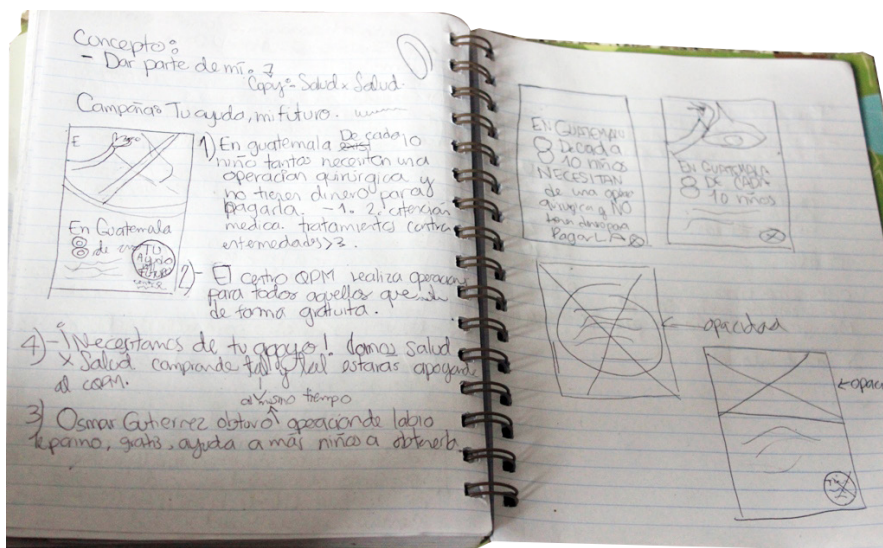 Concepto:
- Dar parte de mí.
Copy: Salud x Salud.
Campaña: Tu ayuda, mi futuro.
E
En Guatemala
8 de
TU
Ayuda
mi
futuro
1) En guatemala De cada 10
niño tantos necesitan una
operación quirurgica y
no tienen dinero para
pagarla. - 1. 2. atención
medica. tratamientos contra
enfermedades > 3.
2) - El centro QPM realiza operaciones
para todos aquellos que
de forma gratuita.
4) - ¡Necesitamos de tu apoyo! damos salud
x Salud comprande tal y tal estaras apoyando
al COPM.
al mismo tiempo
3) Osmar Gutierrez obtuvo operación de labio
leporino, gratis, ayuda a más niños a obtenerla.
EN GUATEMALA
8 De cada
10 niños
NECESITAN
de una
quirurgica y NO
tienen dinero para
PagarLA
EN GUATEMALA
8 DE CADA
10 niños
opacidad
opaci
Tú